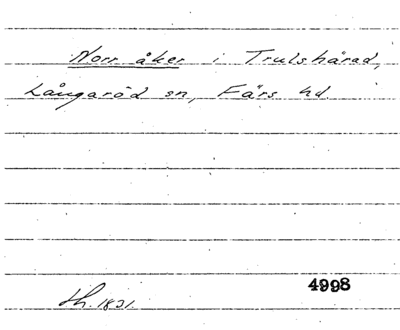 Norr åker i Trulshärad,
Långaröd sn, Färs hd
4998
Sh. 1831.